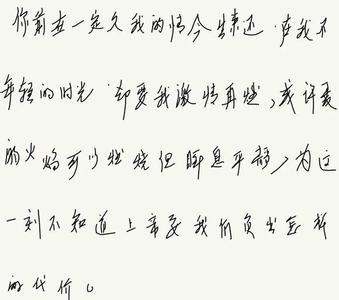 你前世一定欠我的情今生来还,在我不
年轻的时光,却要我激情再燃,或许爱
的火焰可以燃烧但瞬息平静,为这
一刻不知道上帝要我们负出怎样
的代价。